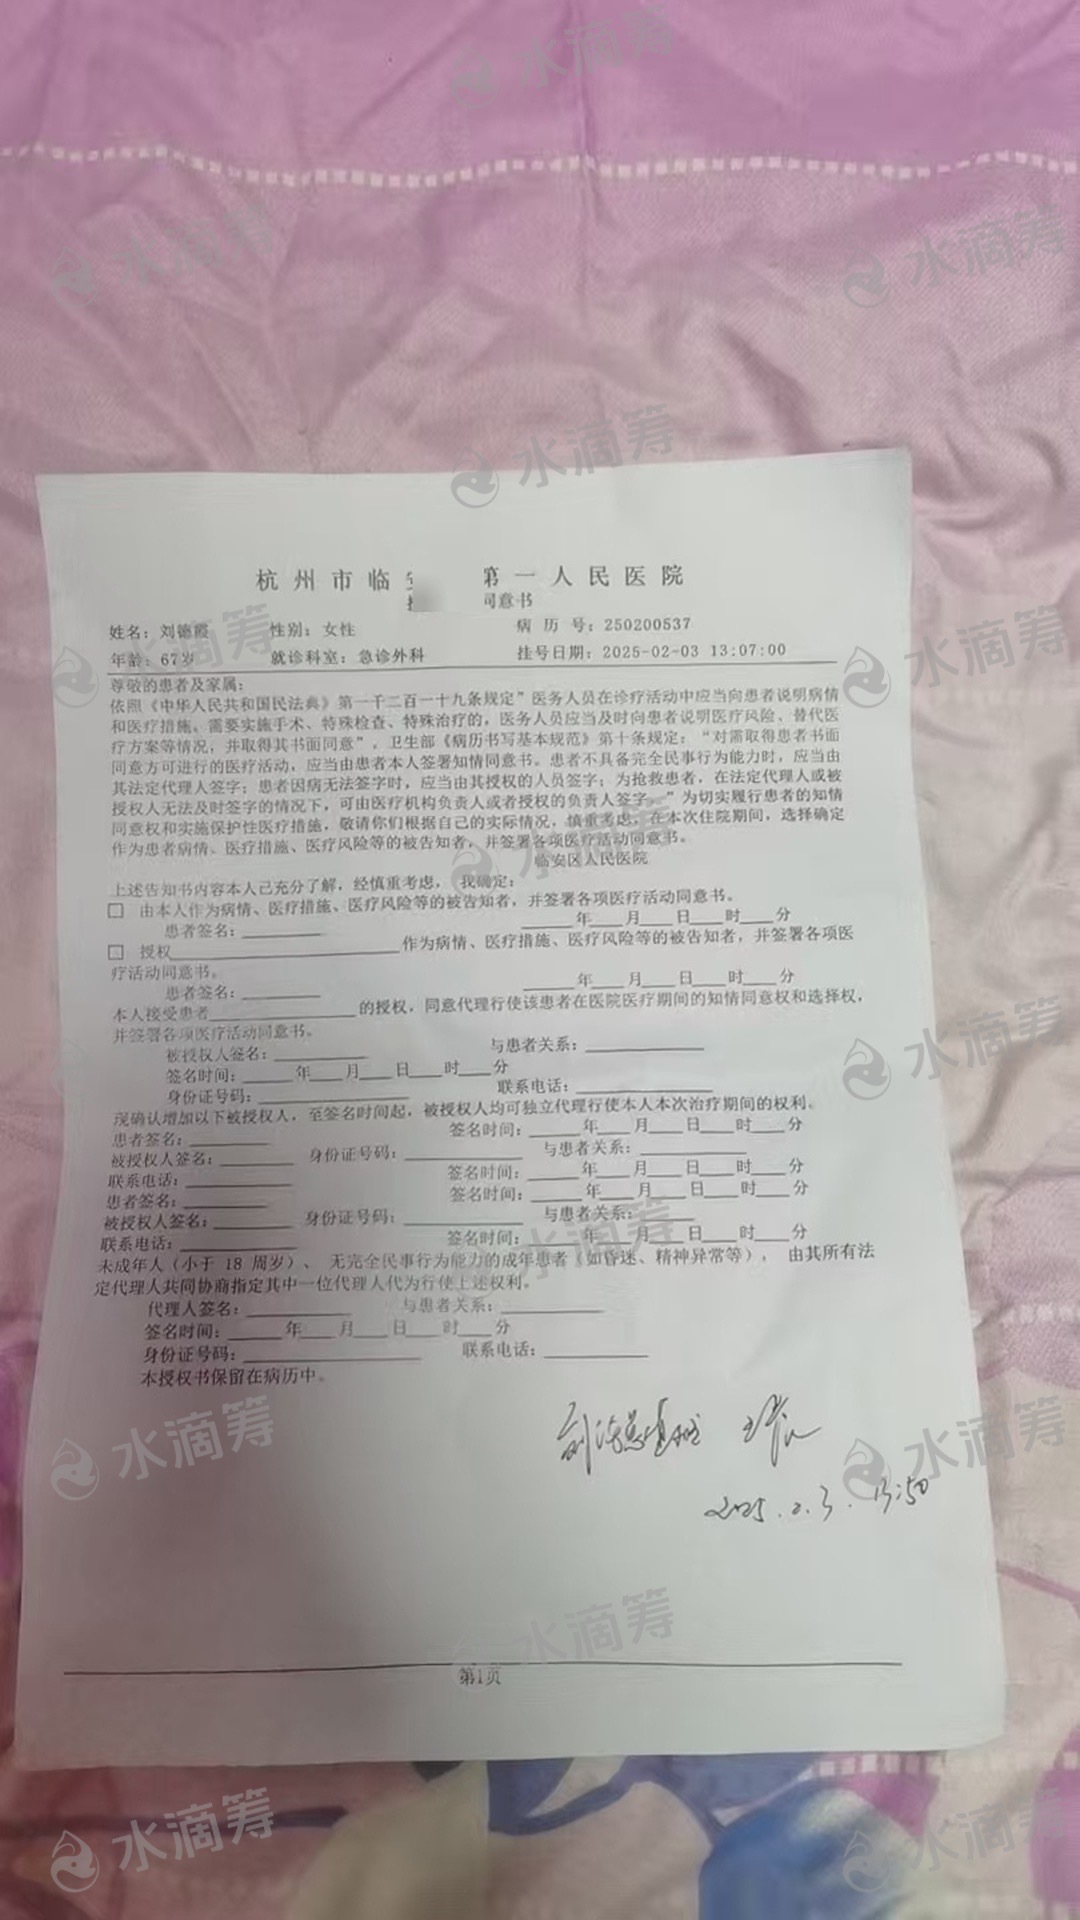 杭州市临 第一人民医院
同意书
姓名：刘德霞 性别：女性 病历号：250200537
年龄：67岁 就诊科室：急诊外科 挂号日期：2025-02-03 13:07:00
尊敬的患者及家属：
依照《中华人民共和国民法典》第一千二百一十九条规定"医务人员在诊疗活动中应当向患者说明病情
和医疗措施。需要实施手术、特殊检查、特殊治疗的，医务人员应当及时向患者说明医疗风险、替代医
疗方案等情况，并取得其书面同意"，卫生部《病历书写基本规范》第十条规定："对需取得患者书面
同意方可进行的医疗活动，应当由患者本人签署知情同意书。患者不具备完全民事行为能力时，应当由
其法定代理人签字；患者因病无法签字时，应当由其授权的人员签字；为抢救患者，在法定代理人或被
授权人无法及时签字的情况下，可由医疗机构负责人或者授权的负责人签字。"为切实履行患者的知情
同意权和实施保护性医疗措施，敬请你们根据自己的实际情况，慎重考虑，在本次住院期间，选择确定
作为患者病情、医疗措施、医疗风险等的被告知者，并签署各项医疗活动同意书。
临安区人民医院
上述告知书内容本人已充分了解，经慎重考虑， 我确定：
□ 由本人作为病情、医疗措施、医疗风险等的被告知者，并签署各项医疗活动同意书。
患者签名：________ ____年___月___日___时___分
□ 授权____________________作为病情、医疗措施、医疗风险等的被告知者，并签署各项医
疗活动同意书。
患者签名：________ ____年___月___日___时___分
本人接受患者______________的授权，同意代理行使该患者在医院医疗期间的知情同意权和选择权，
并签署各项医疗活动同意书。
被授权人签名：________ 与患者关系：__________
签名时间：____年___月___日___时___分
身份证号码：______________ 联系电话：____________
现确认增加以下被授权人，至签名时间起，被授权人均可独立代理行使本人本次治疗期间的权利。
患者签名：________ 签名时间：____年___月___日___时___分
被授权人签名：________ 身份证号码：__________ 与患者关系：________
联系电话：________ 签名时间：____年___月___日___时___分
患者签名：________ 签名时间：____年___月___日___时___分
被授权人签名：________ 身份证号码：__________ 与患者关系：________
联系电话：________ 签名时间：____年___月___日___时___分
未成年人（小于 18 周岁）、 无完全民事行为能力的成年患者（如昏迷、精神异常等）， 由其所有法
定代理人共同协商指定其中一位代理人代为行使上述权利。
代理人签名：________ 与患者关系：________
签名时间：____年___月___日___时___分
身份证号码：______________ 联系电话：________
本授权书保留在病历中。
2025.2.3. 13:50
第1页
水滴筹
水滴筹
水滴筹
水滴筹
水滴筹
水滴筹
水滴筹
水滴筹
水滴筹
水滴筹
水滴筹
水滴筹
水滴筹
水滴筹